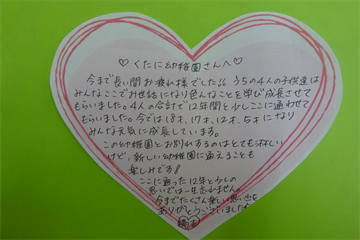 ♡くたに幼稚園さんへ♡
今まで長い間お疲れ様でした。うちの4人の子供達は
みんなここでお世話になり色んなことを学び成長させて
もらいました。4人の合計で12年間と少しここに通わせて
もらいました。今では18才、17才、12才、5才になり
みんな元気に成長しています。
この幼稚園とお別れするのはとても淋しい
けど、新しい幼稚園に通えることも
楽しみです!
ここに通った12年と少しの
思いでは一生忘れません。
今までたくさん楽しい思い出を
ありがとうございました。